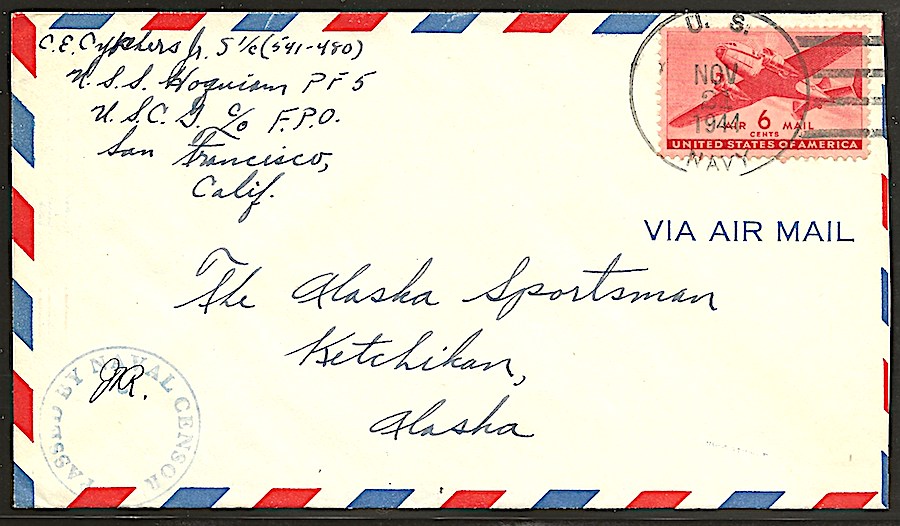 C. E. Cyphers Jr. S 1/c (541-480)
U. S. S. Hoquiam PF 5
U. S. C. G. c/o F.P.O.
San Francisco,
Calif.
U. S.
NOV
1944
NAVY
AIR 6 MAIL
CENTS
UNITED STATES OF AMERICA
VIA AIR MAIL
The Alaska Sportsman
Ketchikan,
Alaska
PASSED BY NAVAL CENSOR
JR.